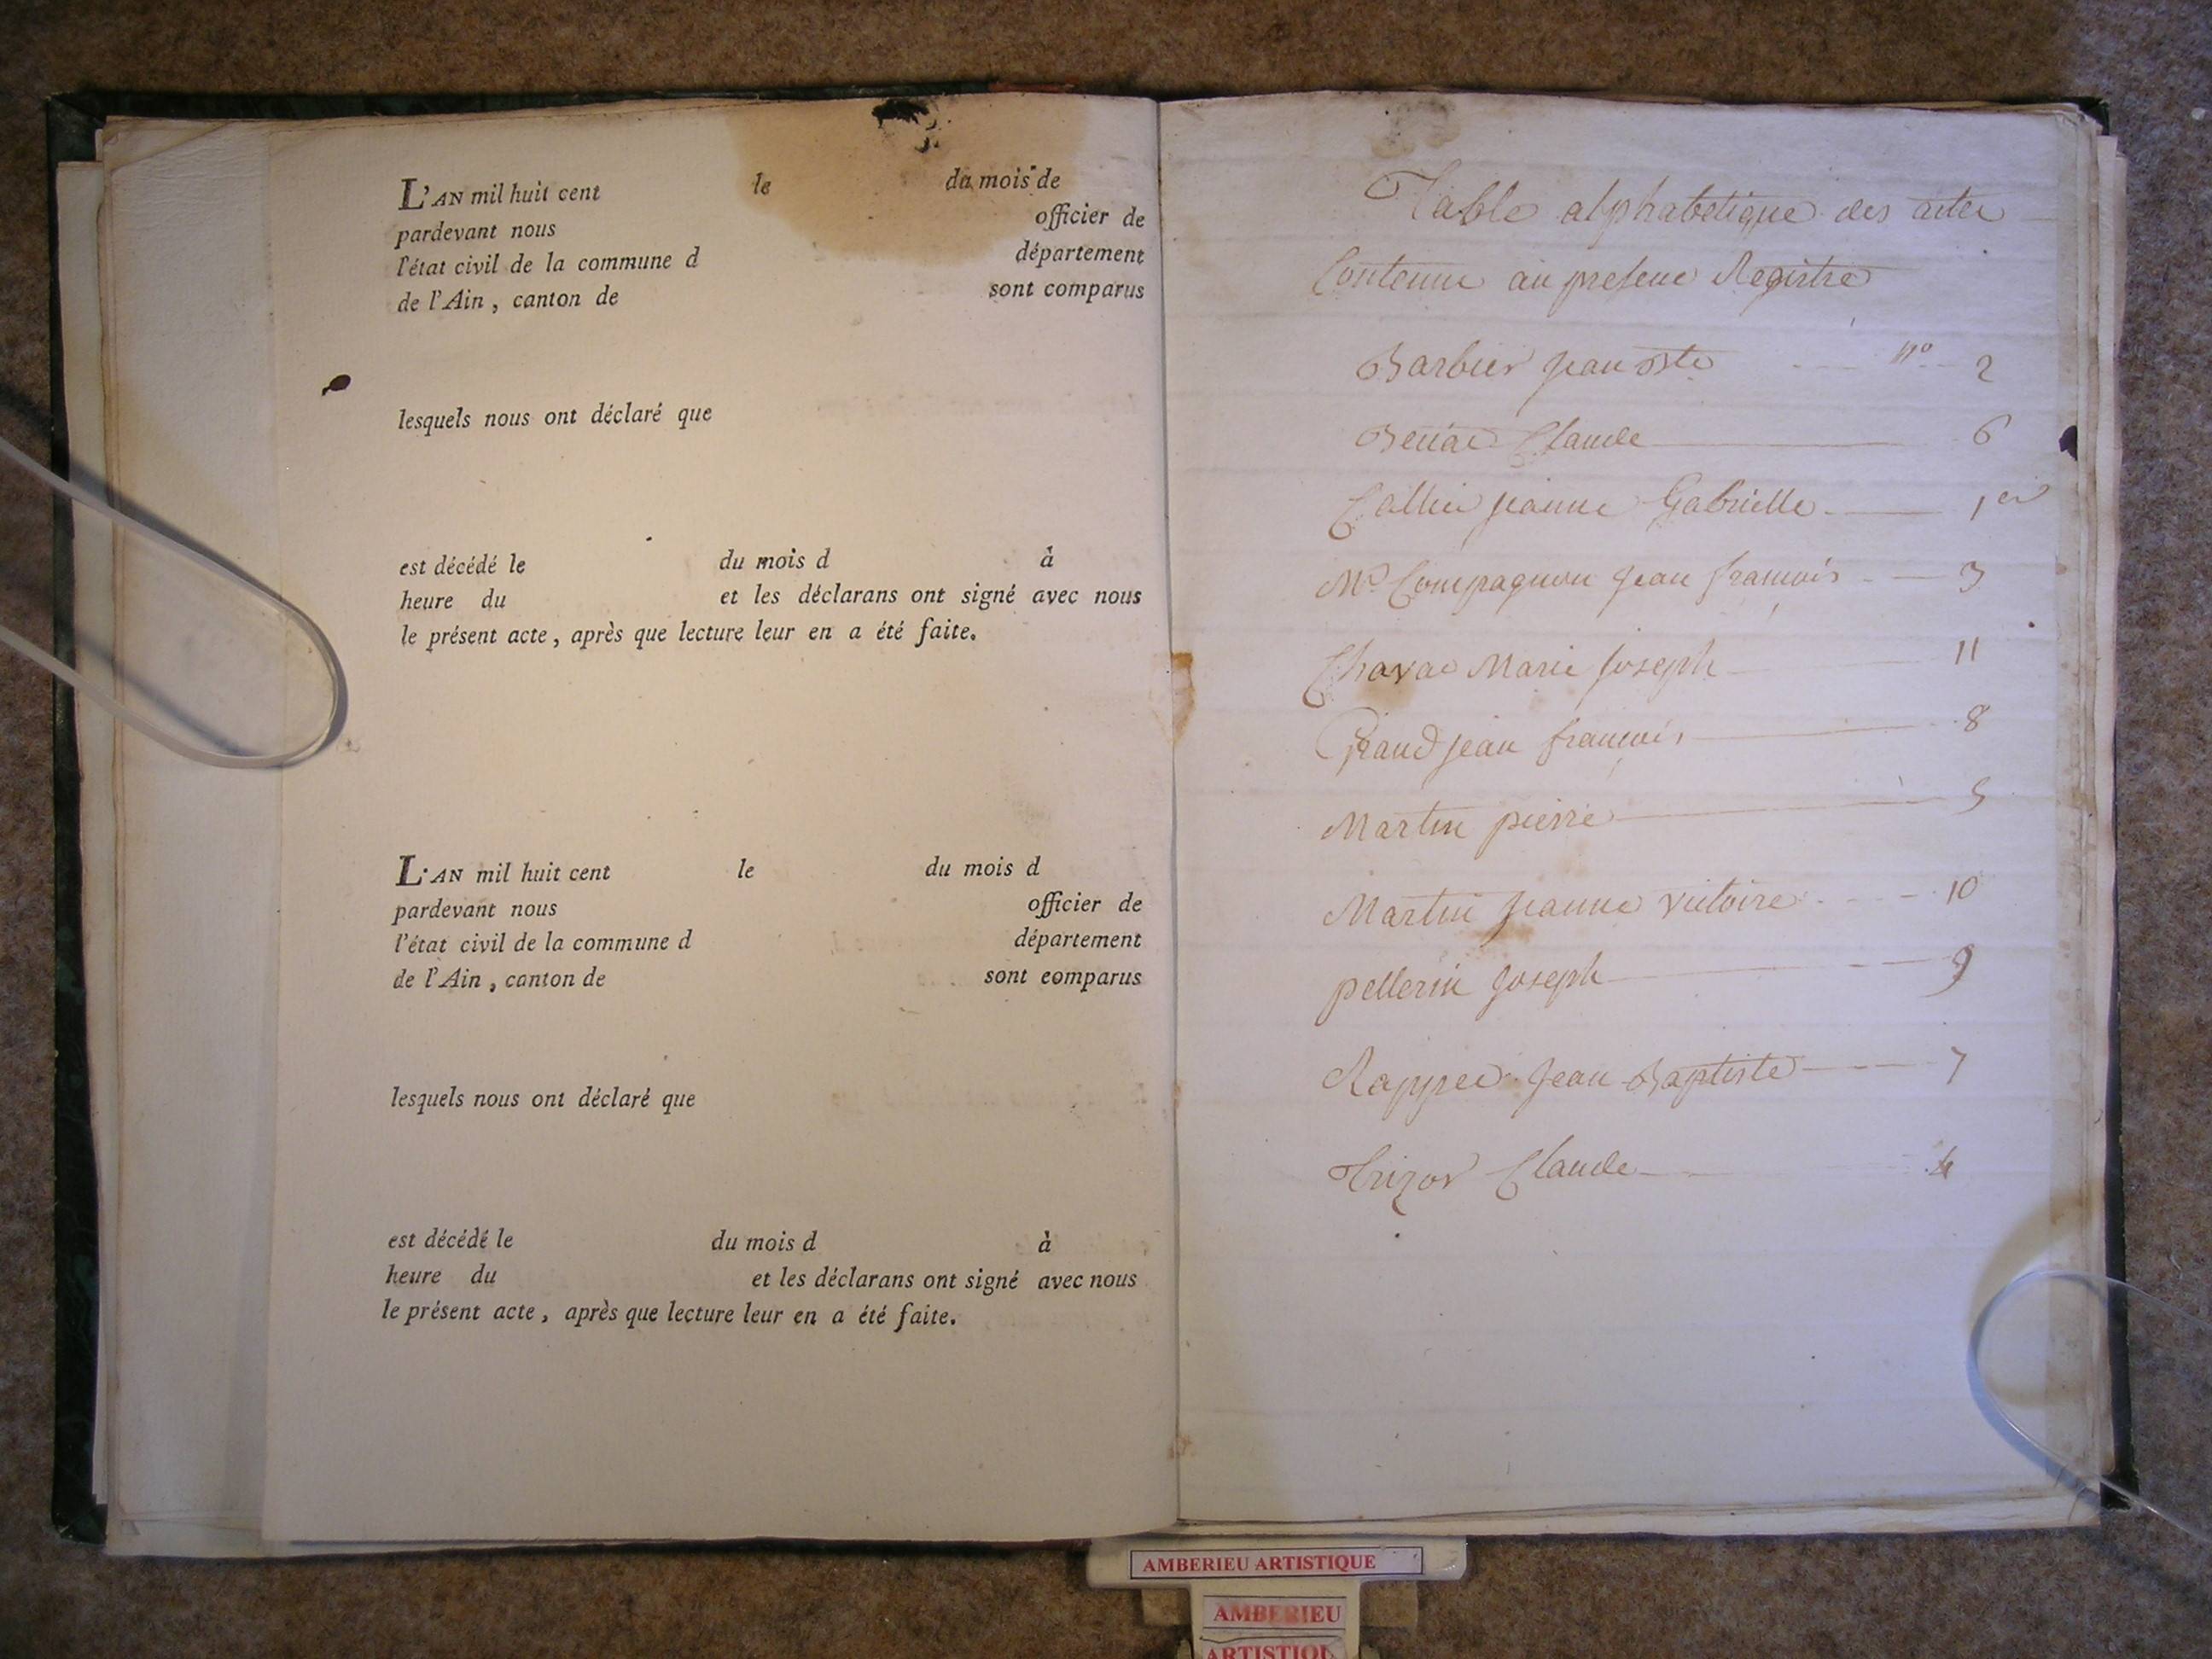 L'AN mil huit cent le du mois de
pardevant nous officier de
l'état civil de la commune d département
de l'Ain, canton de sont comparus
lesquels nous ont déclaré que
est décédé le du mois d à
heure du et les déclarans ont signé avec nous
le présent acte, après que lecture leur en a été faite.
L'AN mil huit cent le du mois d
pardevant nous officier de
l'état civil de la commune d département
de l'Ain, canton de sont comparus
lesquels nous ont déclaré que
est décédé le du mois d à
heure du et les déclarans ont signé avec nous
le présent acte, après que lecture leur en a été faite.
Table alphabetique des actes
Contenue au present Registre
Barbier Jean Bte nº 2
Claude 6
Jeanne Gabrielle 1er
Mr Compagnon Jean francois 3
Marie Joseph 11
Jean francois 8
Martin pierre 5
Martin Jeanne victoire 10
pellerin Joseph 9
Jean Baptiste 7
Claude 4
AMBERIEU ARTISTIQUE
AMBERIEU